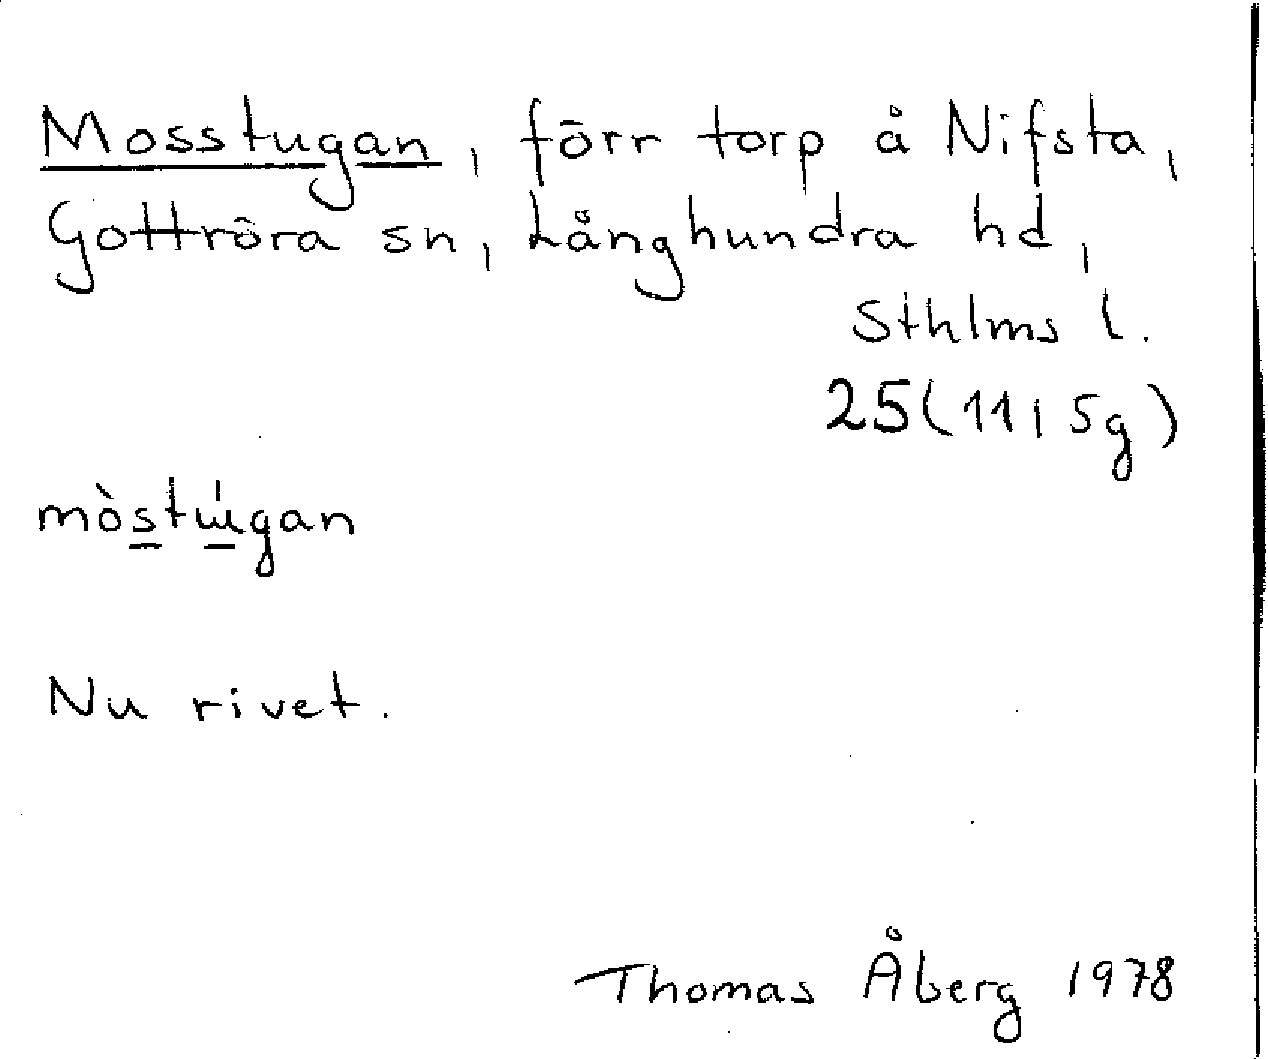 Mosstugan, förr torp å Nifsta,
Gottröra sn, Långhundra hd,
Sthlms l.
25(11 i 5g)
mòs̲tú̲gan
Nu rivet.
Thomas Åberg 1978